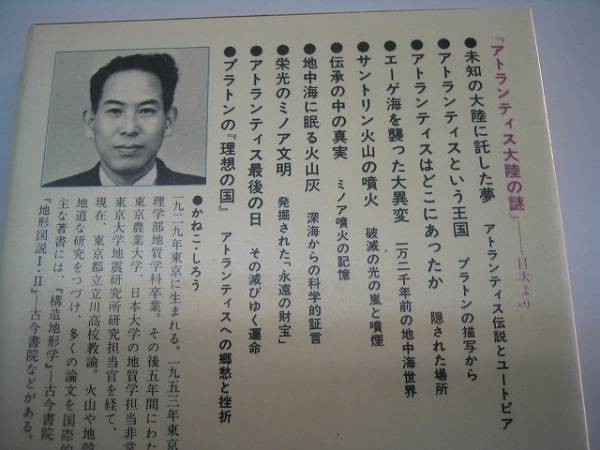 『アトランティス大陸の謎』——目次より・
●未知の大陸に託した夢　アトランティス伝説とユートピア
●アトランティスという王国　プラトンの描写から
●アトランティスはどこにあったか　隠された場所
●エーゲ海を襲った大異変　一万二千年前の地中海世界
●サントリン火山の噴火　破滅の光の嵐と噴煙
●伝承の中の真実　ミノア噴火の記憶
●地中海に眠る火山灰　深海からの科学的証言
●栄光のミノア文明　発掘された「永遠の財宝」
●アトランティス最後の日　その滅びゆく運命
●プラトンの『理想の国』　アトランティスへの郷愁と挫折
●かねこ・しろう
一九二九年東京に生まれる。一九五三年東京
理学部地質学科卒業。その後五年間にわた
東京農業大学、日本大学の地質学担当非常
東京大学地震研究所研究担当官を経て、
現在、東京都立立川高校教諭。火山や地殻
地道な研究をつづけ、多くの論文を国際的
主な著書には、『構造地形学』—古今書院
『地形図説Ⅰ・Ⅱ』—古今書院などがある。